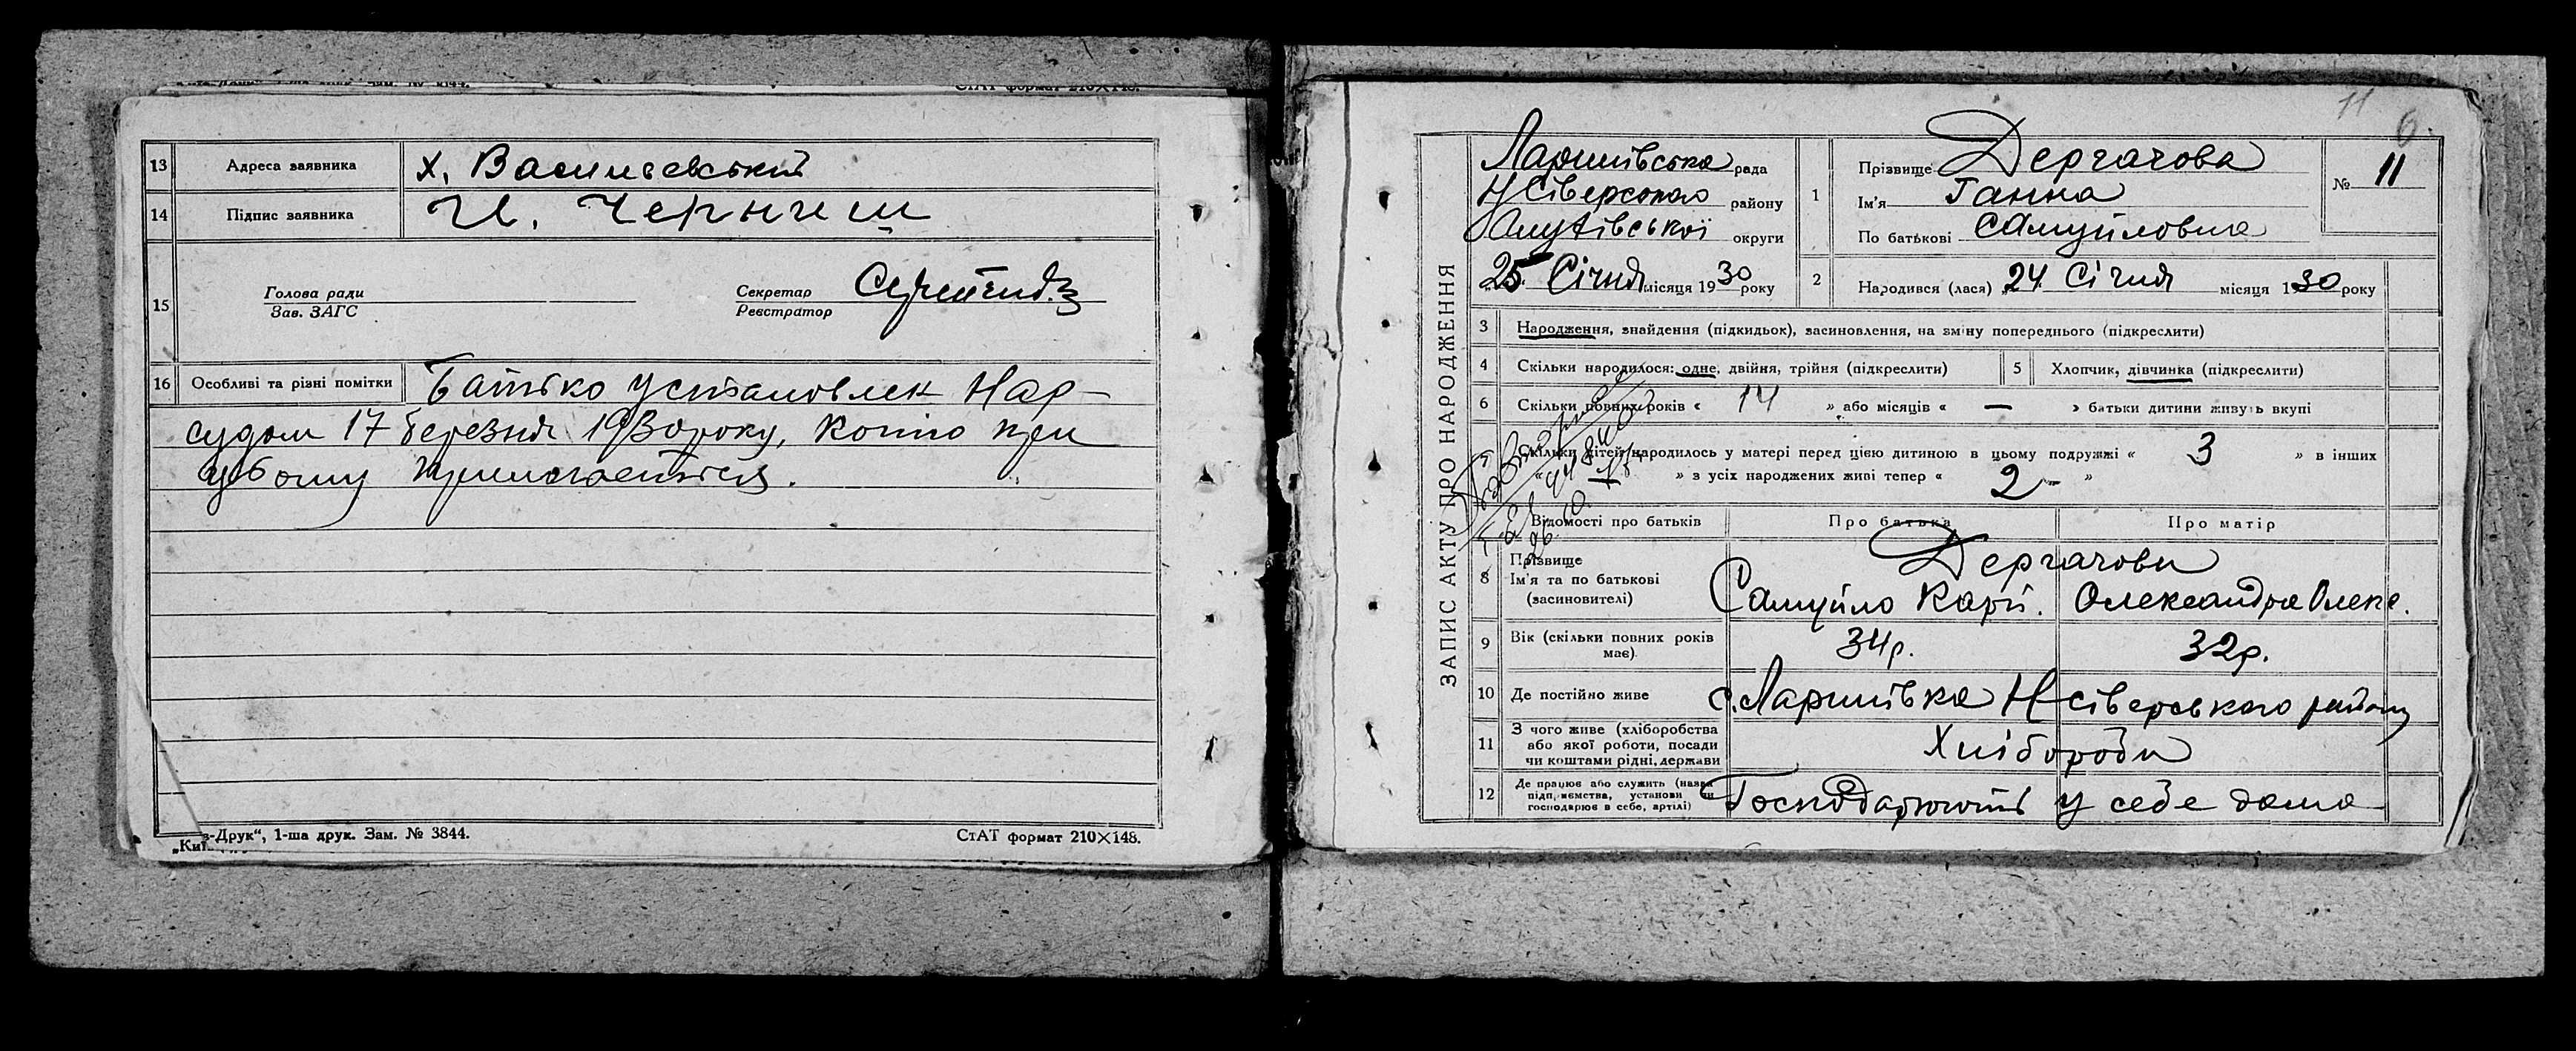 СтАТ формат 210×148.
13 Адреса заявника х. Васильевський
14 Підпис заявника И. Черныш
15 Голова ради
Зав. ЗАГС
Секретар
Реєстратор
16 Особливі та різні помітки Батько установлек Нар-
судом 17 березня 1930 року, копію при
цьому прилагається.
„Київ-Друк“, 1-ша друк. Зам. № 3844. СтАТ формат 210×148.
11 6.
ЗАПИС АКТУ ПРО НАРОДЖЕННЯ
Ларинівська рада
НСіверського району
округи
„25“ Січня місяця 1930 року
1 Прізвище Дергачова
Ім'я Ганна
По батькові Самуйловна
№ 11
2 Народився (лася) „24 Січня місяця 1930 року
3 Народження, знайдення (підкидьок), засиновлення, на зміну попереднього (підкреслити)
4 Скільки народилося: одне, двійня, трійня (підкреслити) 5 Хлопчик, дівчинка (підкреслити)
6 Скільки повних років « 14 » або місяців « — » батьки дитини живуть вкупі
7 Скільки дітей народилось у матері перед цією дитиною в цьому подружжі « 3 » в інших
» з усіх народжених живі тепер « 2 - »
Відомості про батьків Про батька Про матір
8 Прізвище Дергачови
Ім'я та по батькові Самуйло Карп. Олександра Олекс.
(засиновителі)
9 Вік (скільки повних років має) 34р. 32р.
10 Де постійно живе с. Ларинівка НСіверського району
11 З чого живе (хліборобства
або якої роботи, посади
чи коштами рідні, держави
Хлібороби
12 Де працює або служить (назва
підприємства, установи чи
господарює в себе, артілі)
Господарюють у себе дома